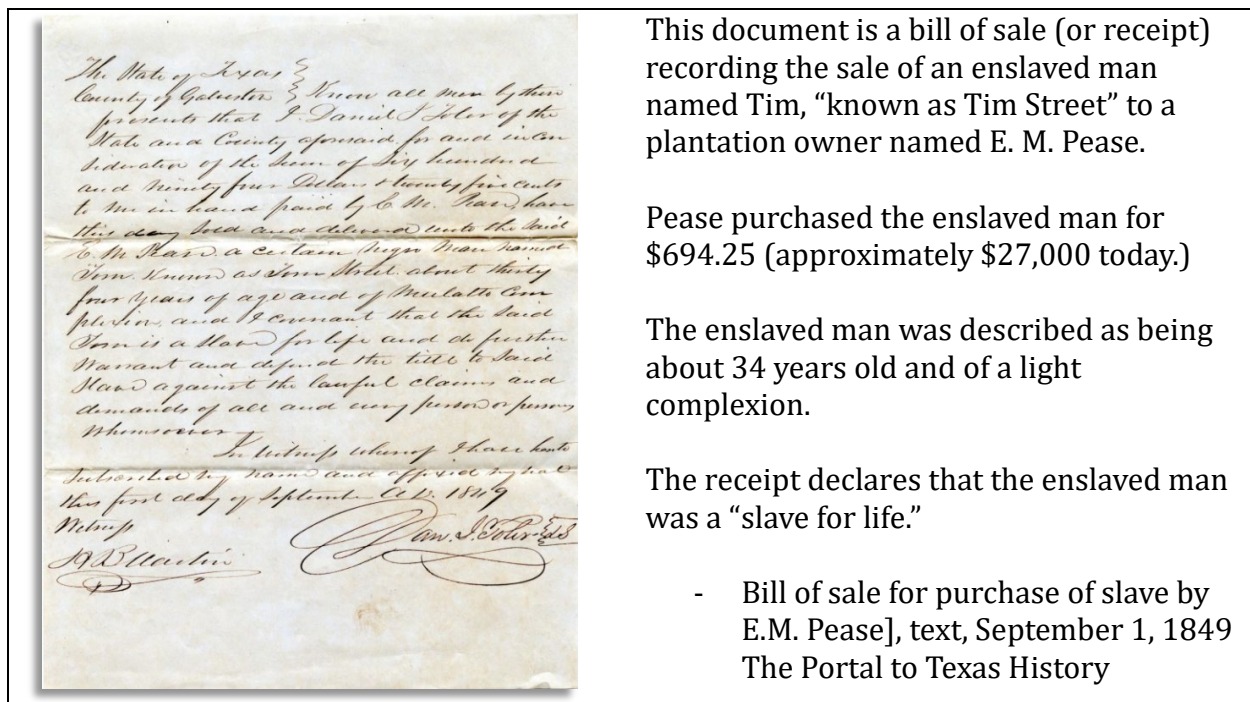 The State of Texas
County of Galveston } Know all men by these
presents that I Daniel J Toler of the
State and County aforesaid for and in con
sideration of the Sum of Six hundred
and Ninety four Dollars & twenty five cents
to me in hand paid by E. M. Pease, have
this day Sold and delivered unto the Said
E. M. Pease a certain Negro Man named
Tom. Known as Tom Street about thirty
four years of age and of Mulatto Com
plexion, and I covenant that the Said
Tom is a Slave for life and do further
Warrant and defend the title to Said
Slave against the lawful claims and
demands of all and every person or persons
Whomsoever
In Witness whereof I have hereto
Subscribed my name and affixed my seal
this first day of September A.D. 1849
Witness
Dan. J. Toler
This document is a bill of sale (or receipt)
recording the sale of an enslaved man
named Tim, “known as Tim Street” to a
plantation owner named E. M. Pease.
Pease purchased the enslaved man for
$694.25 (approximately $27,000 today.)
The enslaved man was described as being
about 34 years old and of a light
complexion.
The receipt declares that the enslaved man
was a “slave for life.”
- Bill of sale for purchase of slave by
E.M. Pease], text, September 1, 1849
The Portal to Texas History